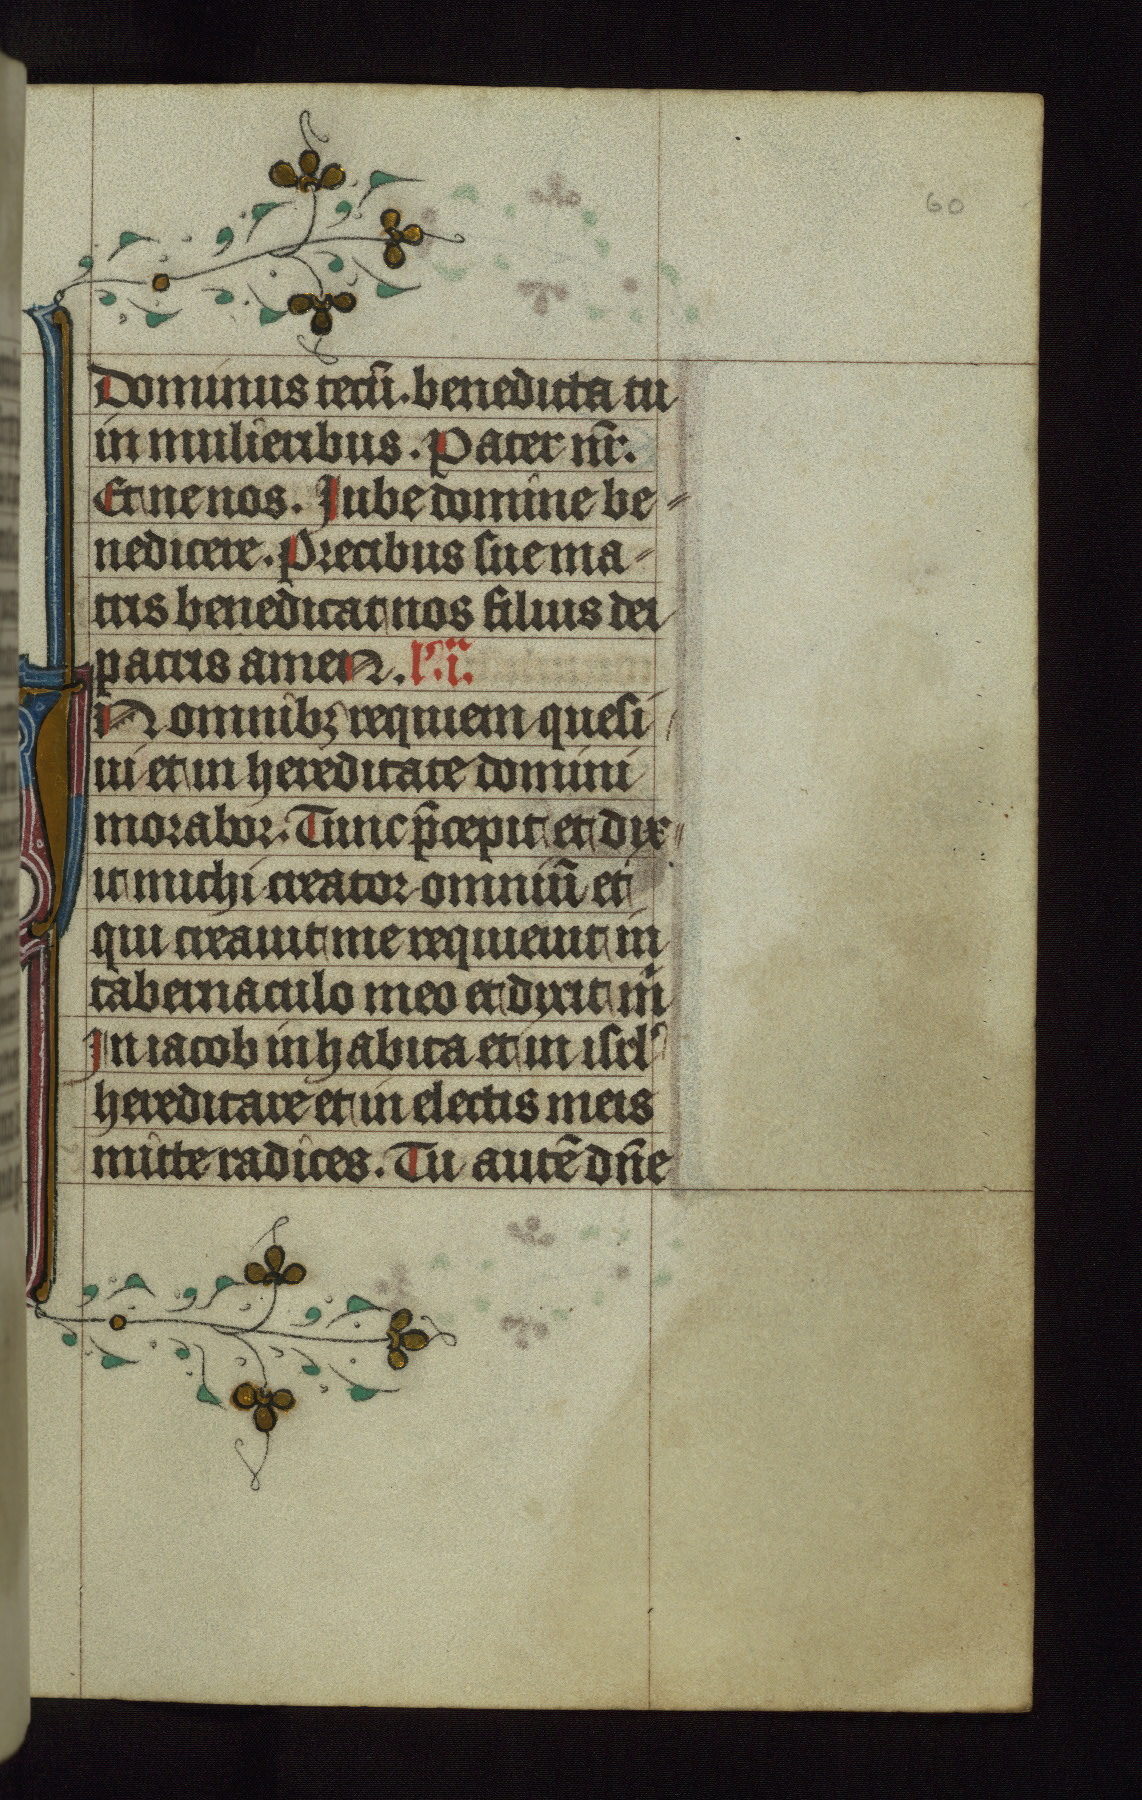 60
Dominus tecū. benedicta tu
in mulieribus. Pater nr̄.
Et ne nos. Iube domine be⸗
nedicere. Precibus sue ma⸗
tris benedicat nos filius dei
patris amen. lc̄. i.
IN omnibꝫ requiem quesi
ui et in hereditate domini
morabor. Tunc p̄cepit et dix⸗
it michi creator omniū et
qui creauit me requieuit in
tabernaculo meo et dixit m̄
In iacob inhabita et in isrl'
hereditare et in electis meis
mitte radices. Tu autē dn̄e